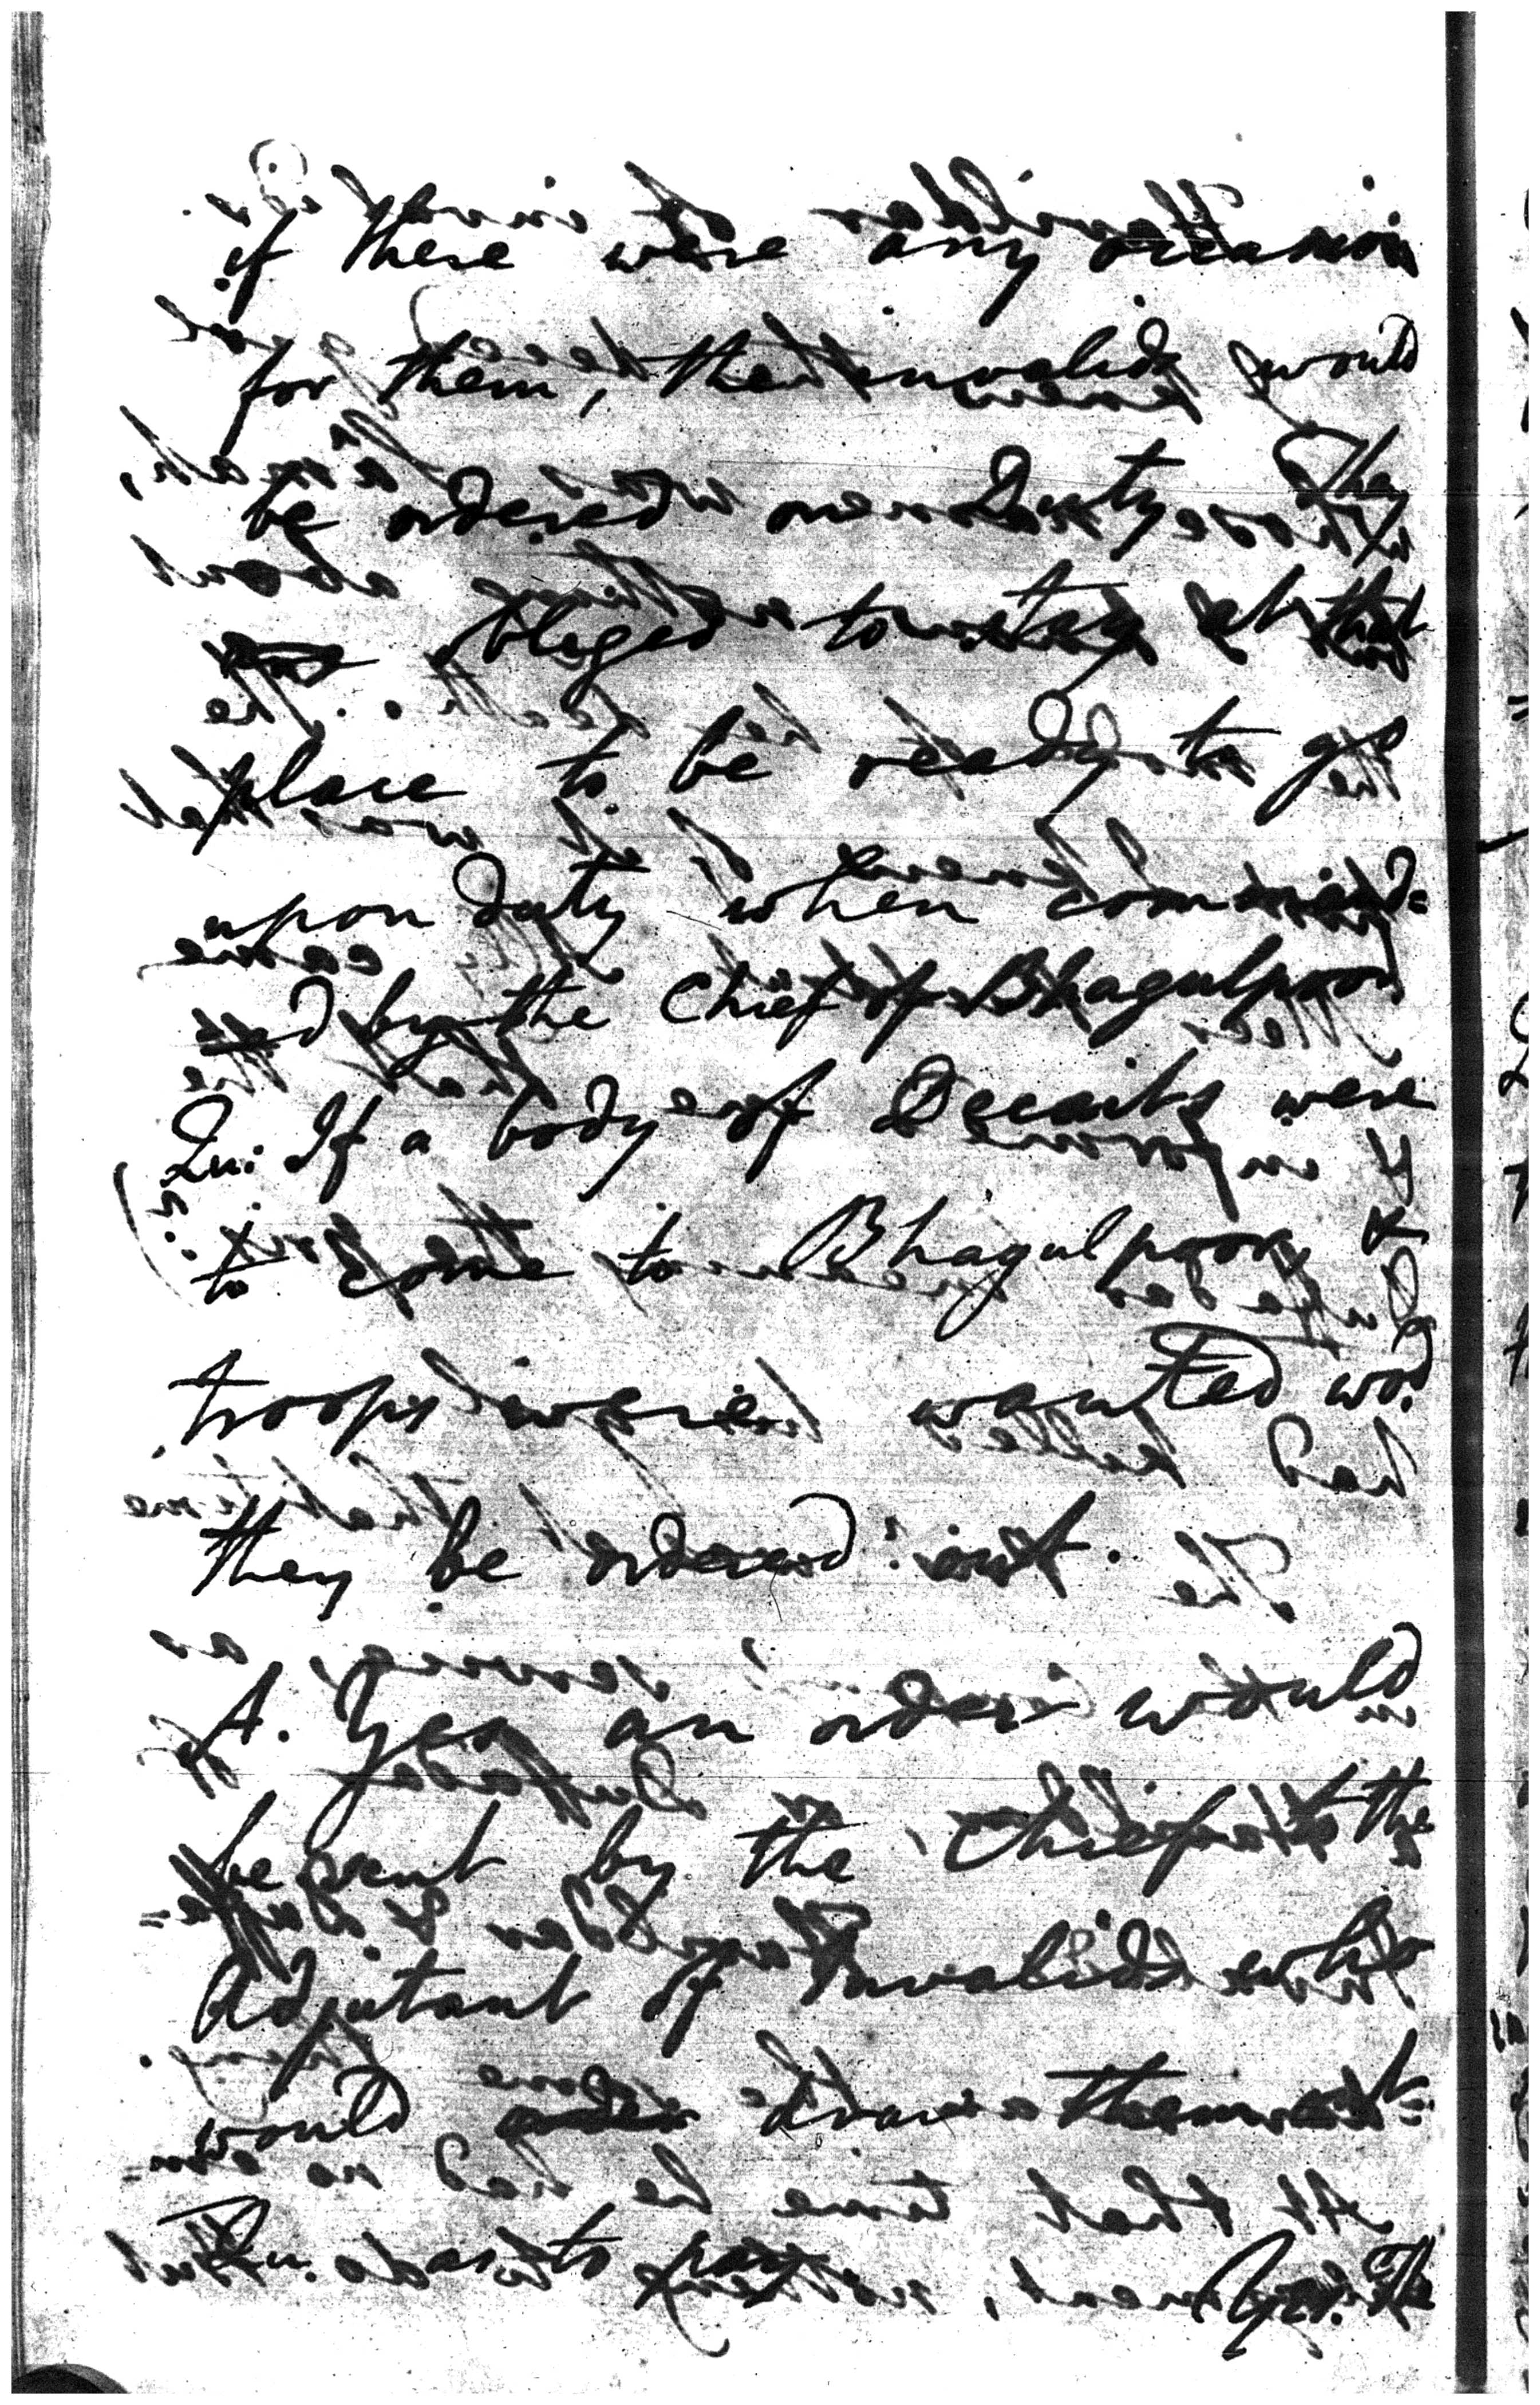 if there were any occasion
for them, the invalids would
be ordered on Duty. They
are obliged to stay at that
place to be ready to go
upon duty when command=
ed by the Chief of Bhagulpoor
Qu: If a body of Decoits were
to come to Bhagulpoor &
troops were wanted wod.
they be ordered out.
A. Yes an order would
be sent by the Chief to the
Adjutant of Invalids who
would draw them out=
Qu. as to pay
Yes. The